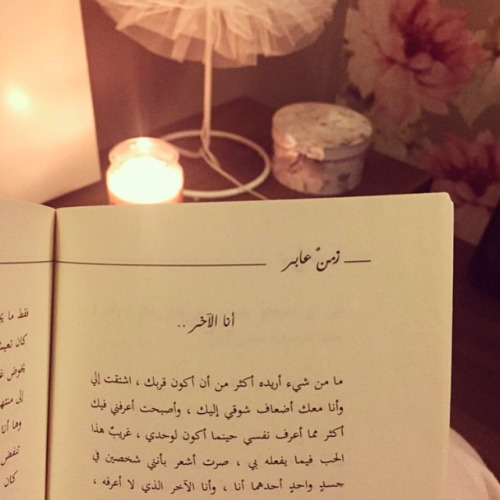 زمنٌ عابر
أنا الآخر ..
ما من شيء أريده أكثر من أن أكون قربك ، اشتقت إلي
وأنا معك أضعاف شوقي إليك ، وأصبحت أعرفني فيك
أكثر مما أعرف نفسي حينما أكون لوحدي ، غريبٌ هذا
الحب فيما يفعله بي ، صرت أشعر بأنني شخصين في
جسدٍ واحدٍ أحدهما أنا ، وأنا الآخر الذي لا أعرفه ،
فقط ما
كان
يخوض
إلى
وها أنا
تنفض
كان